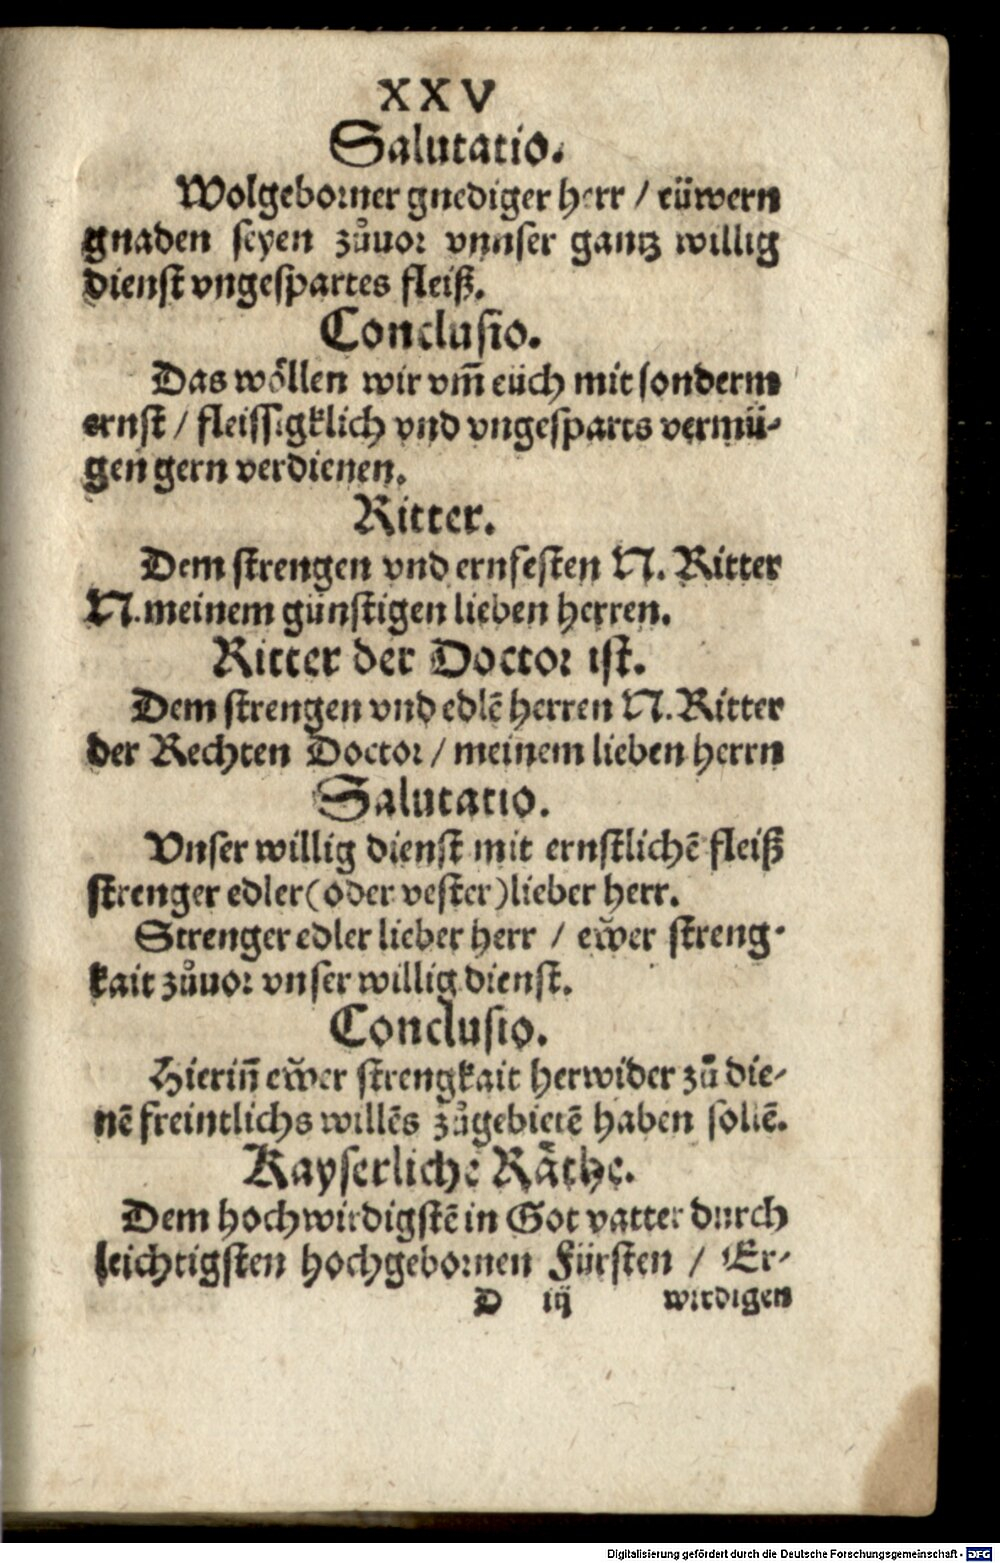 XXV
Salutatio.
Wolgeborner gnediger herr / eüwern
gnaden seyen zůuor vnnser gantz willig
dienst vngespartes fleiß.
Conclusio.
Das wöllen wir vm̃ eüch mit sonderm
ernst / fleissigklich vnd vngesparts vermü-
gen gern verdienen.
Ritter.
Dem strengen vnd ernfesten N. Ritter
N. meinem günstigen lieben herren.
Ritter der Doctor ist.
Dem strengen vnd edlẽ herren N. Ritter
der Rechten Doctor / meinem lieben herrn
Salutatio.
Vnser willig dienst mit ernstlichẽ fleiß
strenger edler (oder vester) lieber herr.
Strenger edler lieber herr / eẅer streng-
kait zůuor vnser willig dienst.
Conclusio.
Hieriñ eẅer strengkait herwider zů die-
nẽ freintlichs willẽs zůgebietẽ haben sollẽ.
Kayserliche Räthe.
Dem hochwirdigstẽ in Got vatter durch
leichtigsten hochgebornen Fürsten / Er-
D iij wirdigen
Digitalisierung gefördert durch die Deutsche Forschungsgemeinschaft - DFG